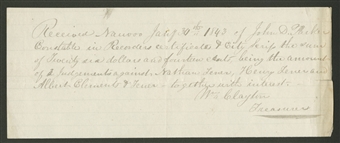 Received Nauvoo July 20th 1843 of John D. Parker
Constable in Recorders certificates & City Scrip the sum
of Twenty six dollars and fourteen cents being the amount
of 2 Judgements against Nathan
Albert Clements & together with interest
Wm Clayton
Treasurer